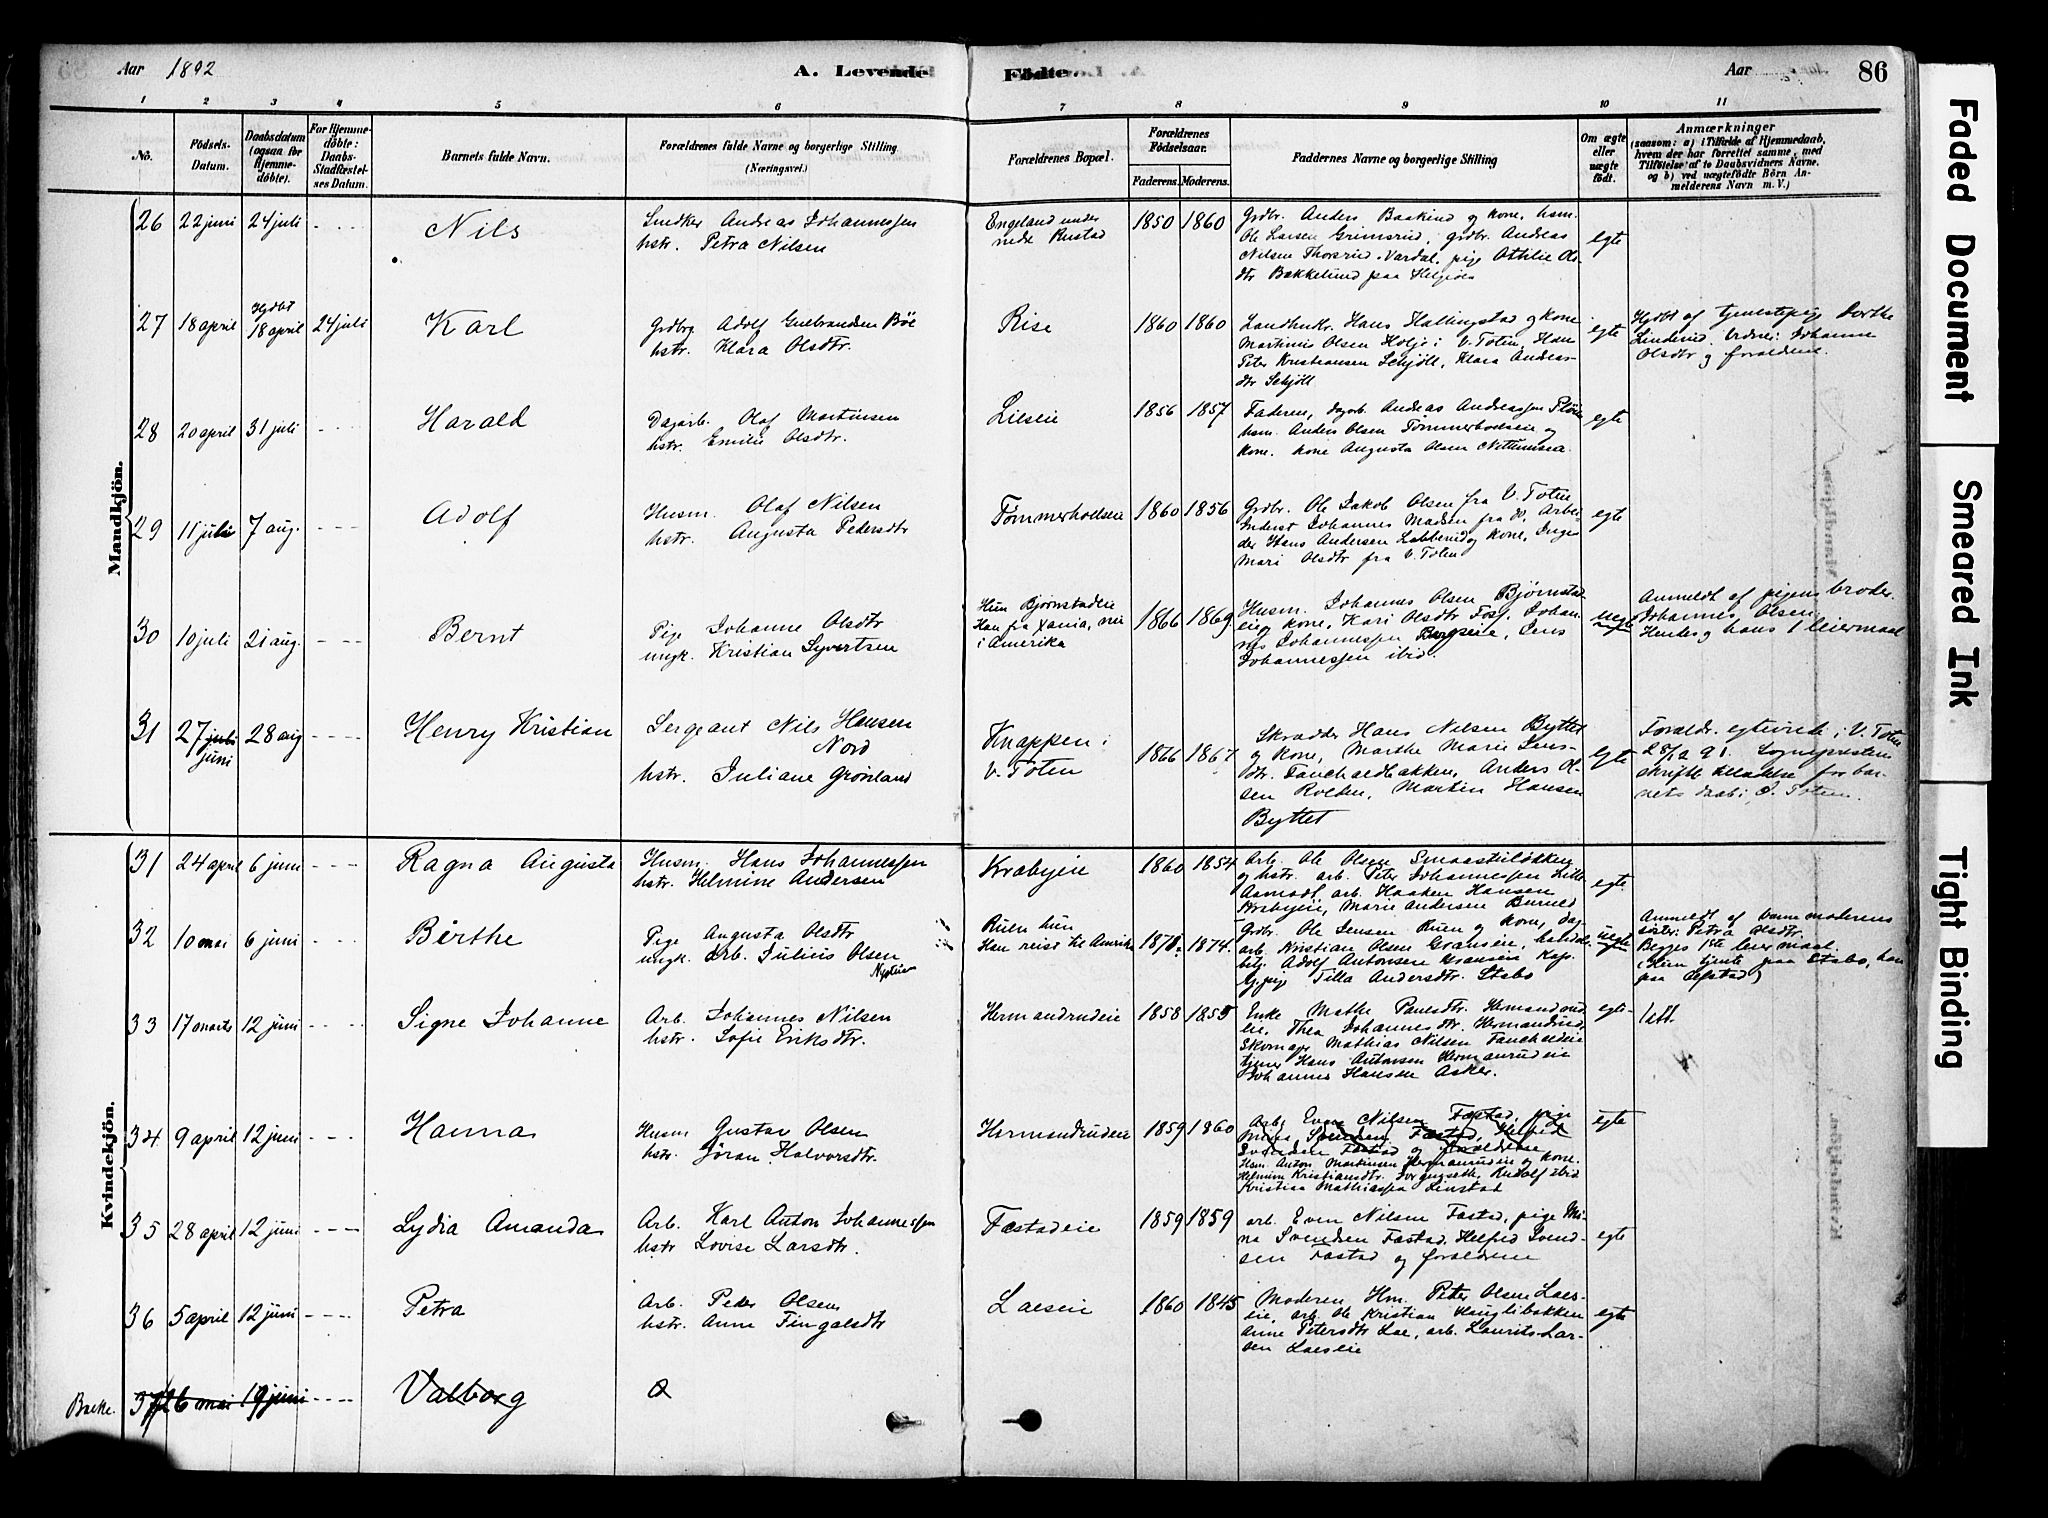 Aar 1892
A. Levende Födte
Aar
86
1 2 3 4 5 6 7 8 9 10 11
No.
Födsels-Datum.
Daabsdatum (ogsaa for Hjemmedöbte).
For Hjemmedöbte: Daabs-Stadfæstelses Datum.
Barnets fulde Navn.
Forældrenes fulde Navne og borgerlige Stilling (Næringsvei.)
Forældrenes Bopæl.
Forældrenes Födselsaar.
Faderens. Moderens.
Faddernes Navne og borgerlige Stilling
Om ægte eller uægte födt.
Anmærkninger
(saasom: a) i Tilfælde af Hjemmedaab, hvem der har forrettet samme, med Tilföielse af to Daabsvidners Navne. og b) ved uægtefödte Börn Anmelderens Navn m. V.)
Mandkjön.
26 22 juni 24 juli Nils
Snedker Andreas Johannessen
hstr. Petra Nilsen
Engeland under
nedr Rustad
1850 1860
Grdbr. Anders Baskind og kone, hsm.
Ole Larsen Grimsrud, grdbr. Andreas
Nilsen Thorsrud Vardal, pige Ottilie Ols-
dtr Bakkelund paa Helgøen
egte
27 18 april Hjdbt 18 april 24 juli Karl
Grdbr. Adolf Gulbrandsen Böe
hstr. Klara Olsdtr.
Rise
1860 1860
Landhdlr. Hans Hallingstad og kone
Martinus Olsen Holjo i V. Toten, Hans
Peter Kristiansen Schjöll, Klara Andreas-
dtr Schjöll
egte
Hjdbt af tjenestepige Dorthe
Linderud. Vidner: Johanne
Olsdtr og foraldrene.
28 20 april 31 juli Harald
Dagarb. Olaf Martinsen
hstr. Emilie Olsdtr.
Lilseie
1856 1857
Faderen, dagarb. Andreas Andreassen
hsm. Anders Olsen Tømmerholseie og
kone. kone Augusta Olsen
egte
29 11 juli 7 aug. Adolf
Husm. Olaf Nilsen
hstr. Augusta Pedersdtr
Tømmerholseie
1860 1856
Grdbr. Ole Jakob Olsen fra V. Toten
Inderst Johannes Madsen fra do, Arbei-
der Hans Andersen og kone, Inger
Mari Olsdtr fra V. Toten
egte
30 10 juli 21 aug. Bernt
Pige Johanne Olsdtr
ungk. Kristian Syvertsen
Hun Bjørnstadeie
Han fra Xania, nu
i Amerika
1866 1869
Husm. Johannes Olsen Bjørnstad-
eie og kone, Kari Olsdtr Fosj. Johan-
nes Johannessen Bergseie, Jens
Johannessen ibid.
uegte
Anmeldt af pigens broder
Johannes Olsen.
Hendes og hans 1 leiermaal
31 27 juli juni 28 aug Henry Kristian
Sergeant Nils Hansen
Nord
hstr. Juliane Grönland
Knappen i
V. Toten
1866 1867
Skrædder Hans Nilsen Byttet
og kone, Marthe Marie Jens-
dtr. Faucholdbakken, Anders Ol-
sen Rolten, Martin Hansen
Byttet
egte
Foraldr. egteviede i V. Toten
28/12 91. Sognepresten
skriftl. tilladelse for bar-
nets daab i Ø. Toten.
Kvindekjön.
31 24 april 6 juni Ragna Augusta
Husm. Hans Johannessen
hstr. Helmine Andersen
Krabyeie
1860 1854
Arb. Ole Olsen Smaastuløkken
og hstr. arb. Peter Johannessen Lille
Aamodt, arb. Haaken Hansen
Krabyeie, Marie Andersen
egte
32 10 mai 6 juni Birthe
Pige Augusta Olsdtr
ungk. Arb. Julius Olsen
Ruen hun
Han reist til Amrika
1870. 1874.
Grdbr. Ole Jensen Ruen og kone, dag-
arb. Kristian Olsen Granseie, handels-
betj. Adolf Antonsen Kap.
pige Tilla Andersdtr. Stabo
uegte
Anmeldt af barnemoderens
sister: Petra Olsdtr.
Begges 1ste leiermaal.
(Hun tjente paa Stabo, han
paa Alfstad)
33 17 marts 12 juni Signe Johanne
Arb. Johannes Nilsen
hstr. Sofie Eriksdtr.
Hermandrudeie
1858 1855
Enke Mathe Paulsdtr. Hermandrud-
eie, Thea Johannesdtr. Hermandrud,
Skomager Mathias Nilsen Faucholdeie
tjener Hans Antonsen Hermanrudeie
Johannes Hansen Asker.
egte
1 att.
34 9 april 12 juni Hanna
Husm Gustav Olsen
hstr. Jöran Halvorsdtr.
Hermandrudeie
1859 1860
Arb. Even Nilsen Fæstad, pige
Mina Svendsen Fæstad, Helfrid
Svendsen Fæstad og foraldrene
Hsm. Anton Martinsen Hermanrudeie og kone.
Helmine Kristiansdtr. Rudolf ibid
Kristian Mathiassen Linstad
egte
35 28 april 12 juni Lydia Amanda
Arb. Karl Anton Johannessen
hstr Lovise Larsdtr.
Fæstadeie
1859 1859
arb. Even Nilsen Fæstad, pige Mi-
na Svendsen Fæstad, Helfrid Svend-
sen Fæstad og foraldrene
egte
36 5 april 12 juni Petra
Arb. Peder Olsen
hstr. Anne Fingalsdtr
Laeseie
1860 1845
Moderen Hm. Peter Olsen Laes-
eie, arb. Ole Kristian Hauglibakken
Anne Petersdtr Lae, arb. Laurits Lar-
sen Laeseie
egte
Bakke. 37 26 mai 19 juni Valborg
Faded Document
Smeared Ink
Tight Binding